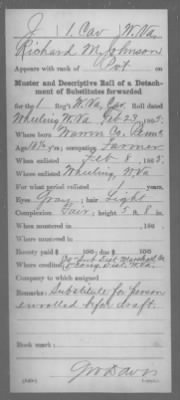 J | 1 Cav | W. Va.
Richard M Johnson
Appears with rank of Pvt on
Muster and Descriptive Roll of a Detach-
ment of Substitutes forwarded
for the 1 Reg't W. Va. Cav. Roll dated
Wheeling W Va Feb 23, 1865.
Where born Warren Co. Penna
Age 18 y'rs; occupation Farmer
When enlisted Feb 8, 1865
Where enlisted Wheeling, W Va
For what period enlisted 1 years
Eyes Gray; hair Light
Complexion Fair; height 5 ft. 8 in.
When mustered in , 186 .
Where mustered in
Bounty paid $ 100; due $ 100
Where credited Sub Dist Marshall Co
1 Cong. Dist. W. Va.
Company to which assigned
Remarks: Substitute for person
enrolled before draft.
Book mark:
J W Davis